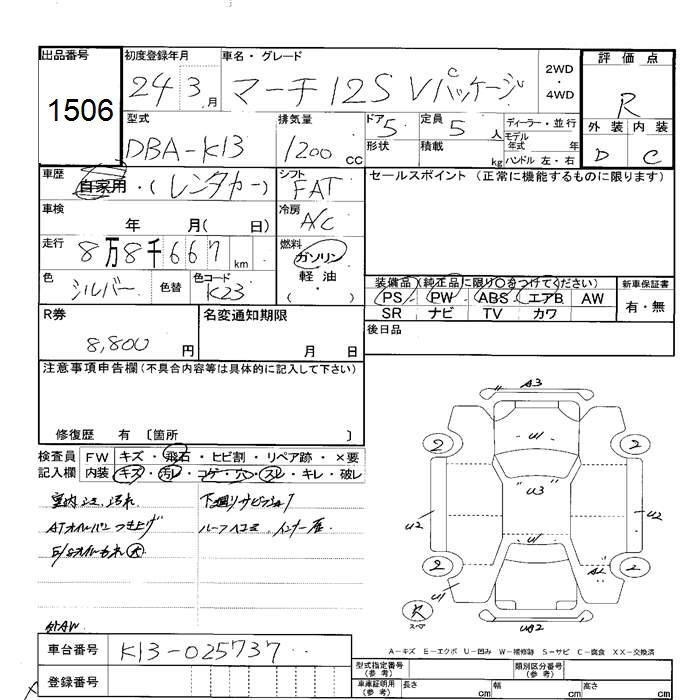 出品番号
1506
初度登録年月
24 3月
車名・グレード
マーチ 12S Vパッケージ
2WD
・
4WD
評価点
R
型式
DBA-K13
排気量
1200cc
ドア
5
形状
定員
5人
積載
kg
ディーラー・並行
モデル
年式 年
ハンドル 左・右
外装 内装
D C
車歴
自家用・(レンタカー)
シフト
FAT
セールスポイント (正常に機能するものに限ります)
車検
年 月( 日)
冷房
A/C
走行
8万8千667km
燃料
ガソリン
軽油
( ・ )
色
シルバー
色替
色コード
K23
装備品(純正品に限り○をつけてください)
PS PW ABS エアB AW
SR ナビ TV カワ
新車保証書
有・無
R券
8,800円
名変通知期限
月 日
後日品
注意事項申告欄(不具合内容等は具体的に記入して下さい)
修復歴 有 〔箇所 〕
検査員
記入欄
FW キズ・飛石・ヒビ割・リペア跡・×要
内装 キズ・汚レ・コゲ・穴・スレ・キレ・破レ
室内 汚れ
ATオイルパン つき上げ
E/gオイルもれ 大
下廻りサビ
ルーフヘコミ
外AW
A3
2 2
U1
U3
U2 U2
U1
2 2
U1
R
スペア
A-キズ E-エクボ U-凹み W-補修跡 S-サビ C-腐食 XX-交換済
車台番号
K13-025737
登録番号
型式指定番号
(参考)
類別区分番号
(参考)
車庫証明用
(参考)
長さ cm 幅 cm 高さ cm